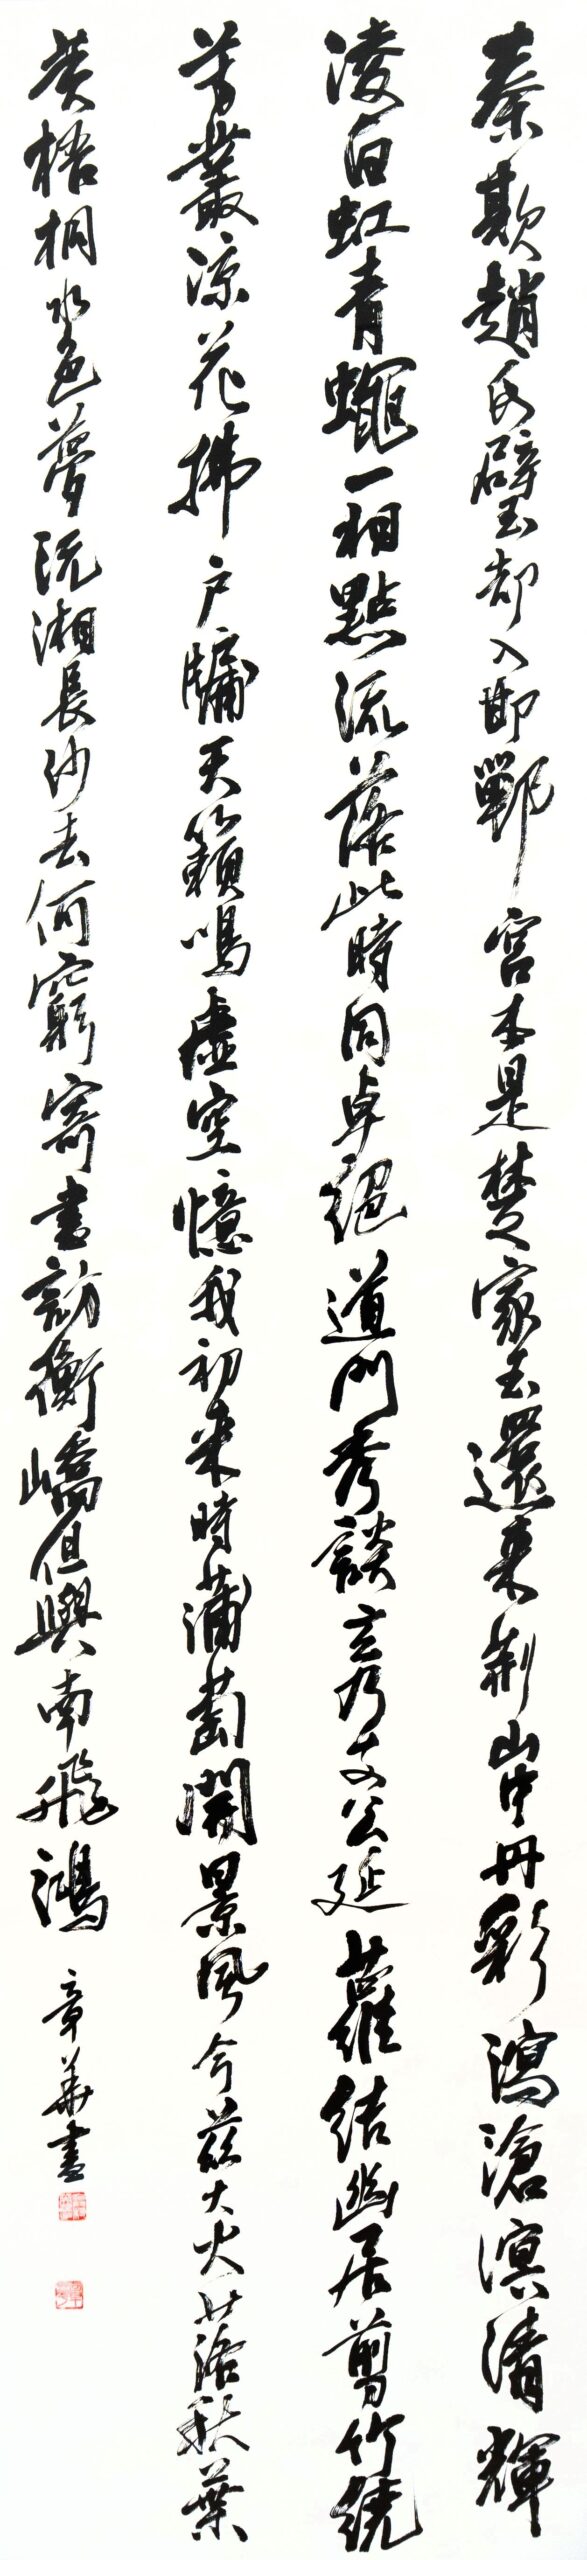 秦欺趙氏璧却入邯鄲宮本是楚家玉還来荆山中丹彩瀉滄溟清輝
凌白虹青蠅一相點流落此時同卓絕道門秀談玄乃支公延蘿結幽居剪竹繞
芳叢凉花拂户牖天籟鳴虛空憶我初来時蒲萄開景風今茲大火落秋葉
黄梧桐水色夢沅湘長沙去何窮寄書訪衡嶠但與南飛鴻
章華書